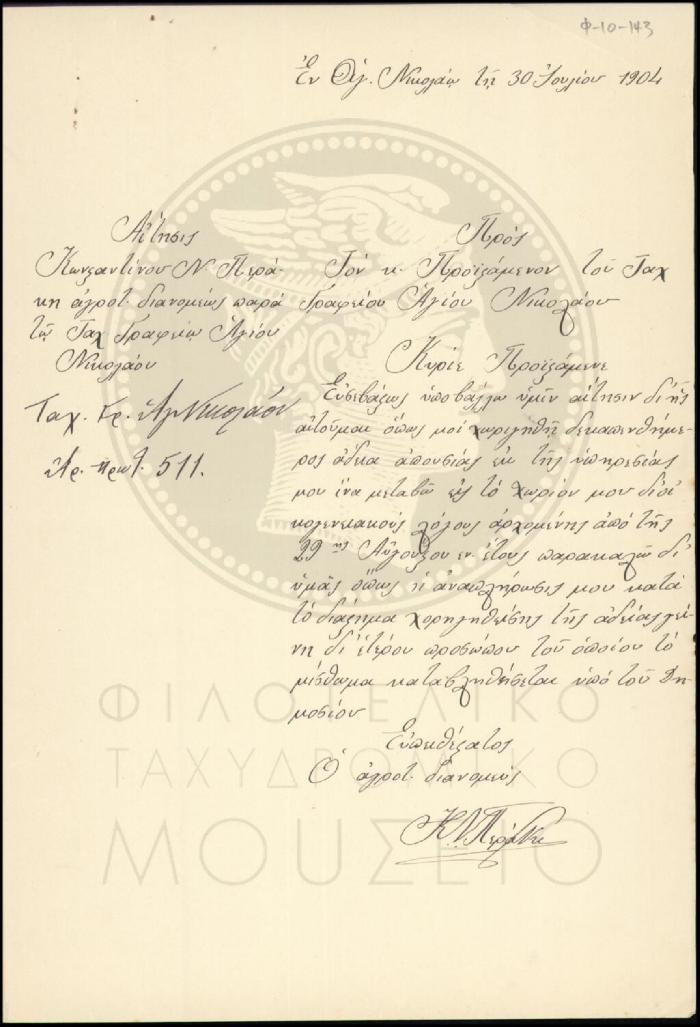 Φ-10-143
Ἐν Ἁγ. Νικολάῳ τῇ 30 Ἰουλίου 1904
Αἴτησις
Κωνσταντίνου Ν Περά-
κη ἀγροτ. διανομέως παρὰ
τῷ Ταχ Γραφείῳ Ἁγίου
Νικολάου
Ταχ. Γρ. Ἁγ Νικολάου
Ἀρ. πρωτ. 511.
Πρὸς
Τὸν κ. Προϊστάμενον τοῦ Ταχ
Γραφείου Ἁγίου Νικολάου
Κύριε Προϊστάμενε
Εὐσεβάστως ὑποβάλλω ὑμῖν αἴτησιν δι ἧς
αἰτοῦμαι ὅπως μοὶ χωριγηθῇ δεκαπενθήμε-
ρος ἄδεια ἀπουσίας ἐκ τῆς ὑπηρεσίας
μου ἵνα μεταβῶ εἰς τὸ χωρίον μου δι οἰ
κογενειακοὺς λόγους ἀρχομένης ἀπὸ τῆς
29ης Αὐγούστου ἐν. ἔτους παρακαλῶ δι
ὑμᾶς ὅπως ἡ ἀναπλήρωσις μου κατὰ
τὸ διάστημα χορηγηθείσης τῆς ἀδείας γεί-
νῃ δι ἑτέρου προσώπου τοῦ ὁποίου τὸ
μίσθωμα καταβληθήσεται ὑπὸ τοῦ Δη-
μοσίου
Εὐπειθέστατος
Ὁ ἀγροτ. διανομεύς
Κ. Ν. Περάκη
ΦΙΛΟΤΕΛΙΚΟ
ΤΑΧΥΔΡΟΜΙΚΟ
ΜΟΥΣΕΙΟ